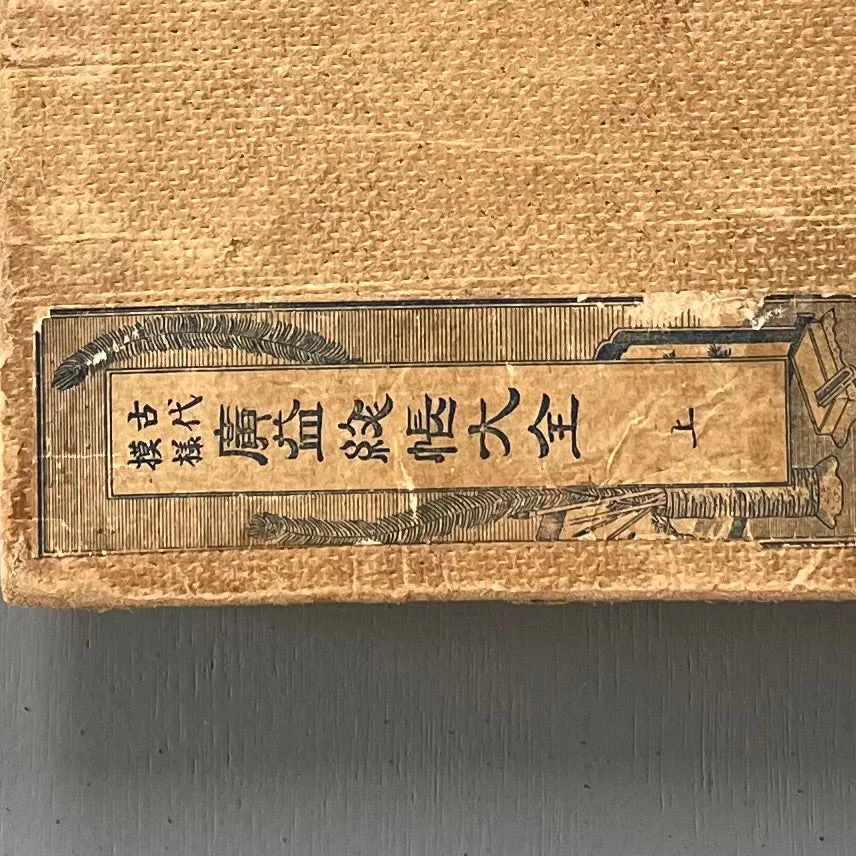 古代
模様
廣益紋帳大全 上